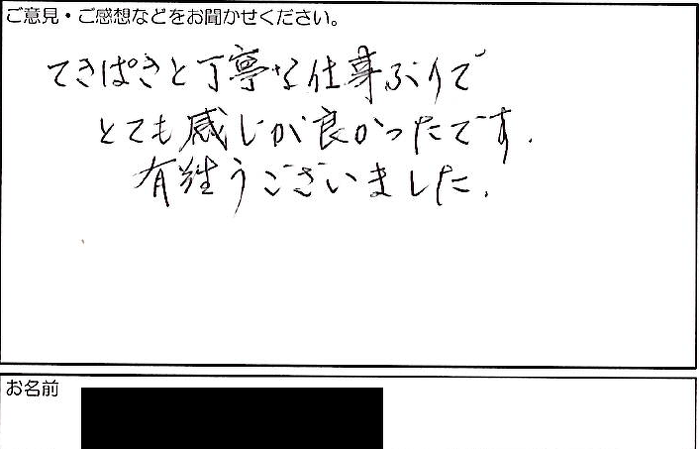 ご意見・ご感想などをお聞かせください。
てきぱきと丁寧な仕事ぶりで
とても感じが良かったです.
有難うございました.
お名前